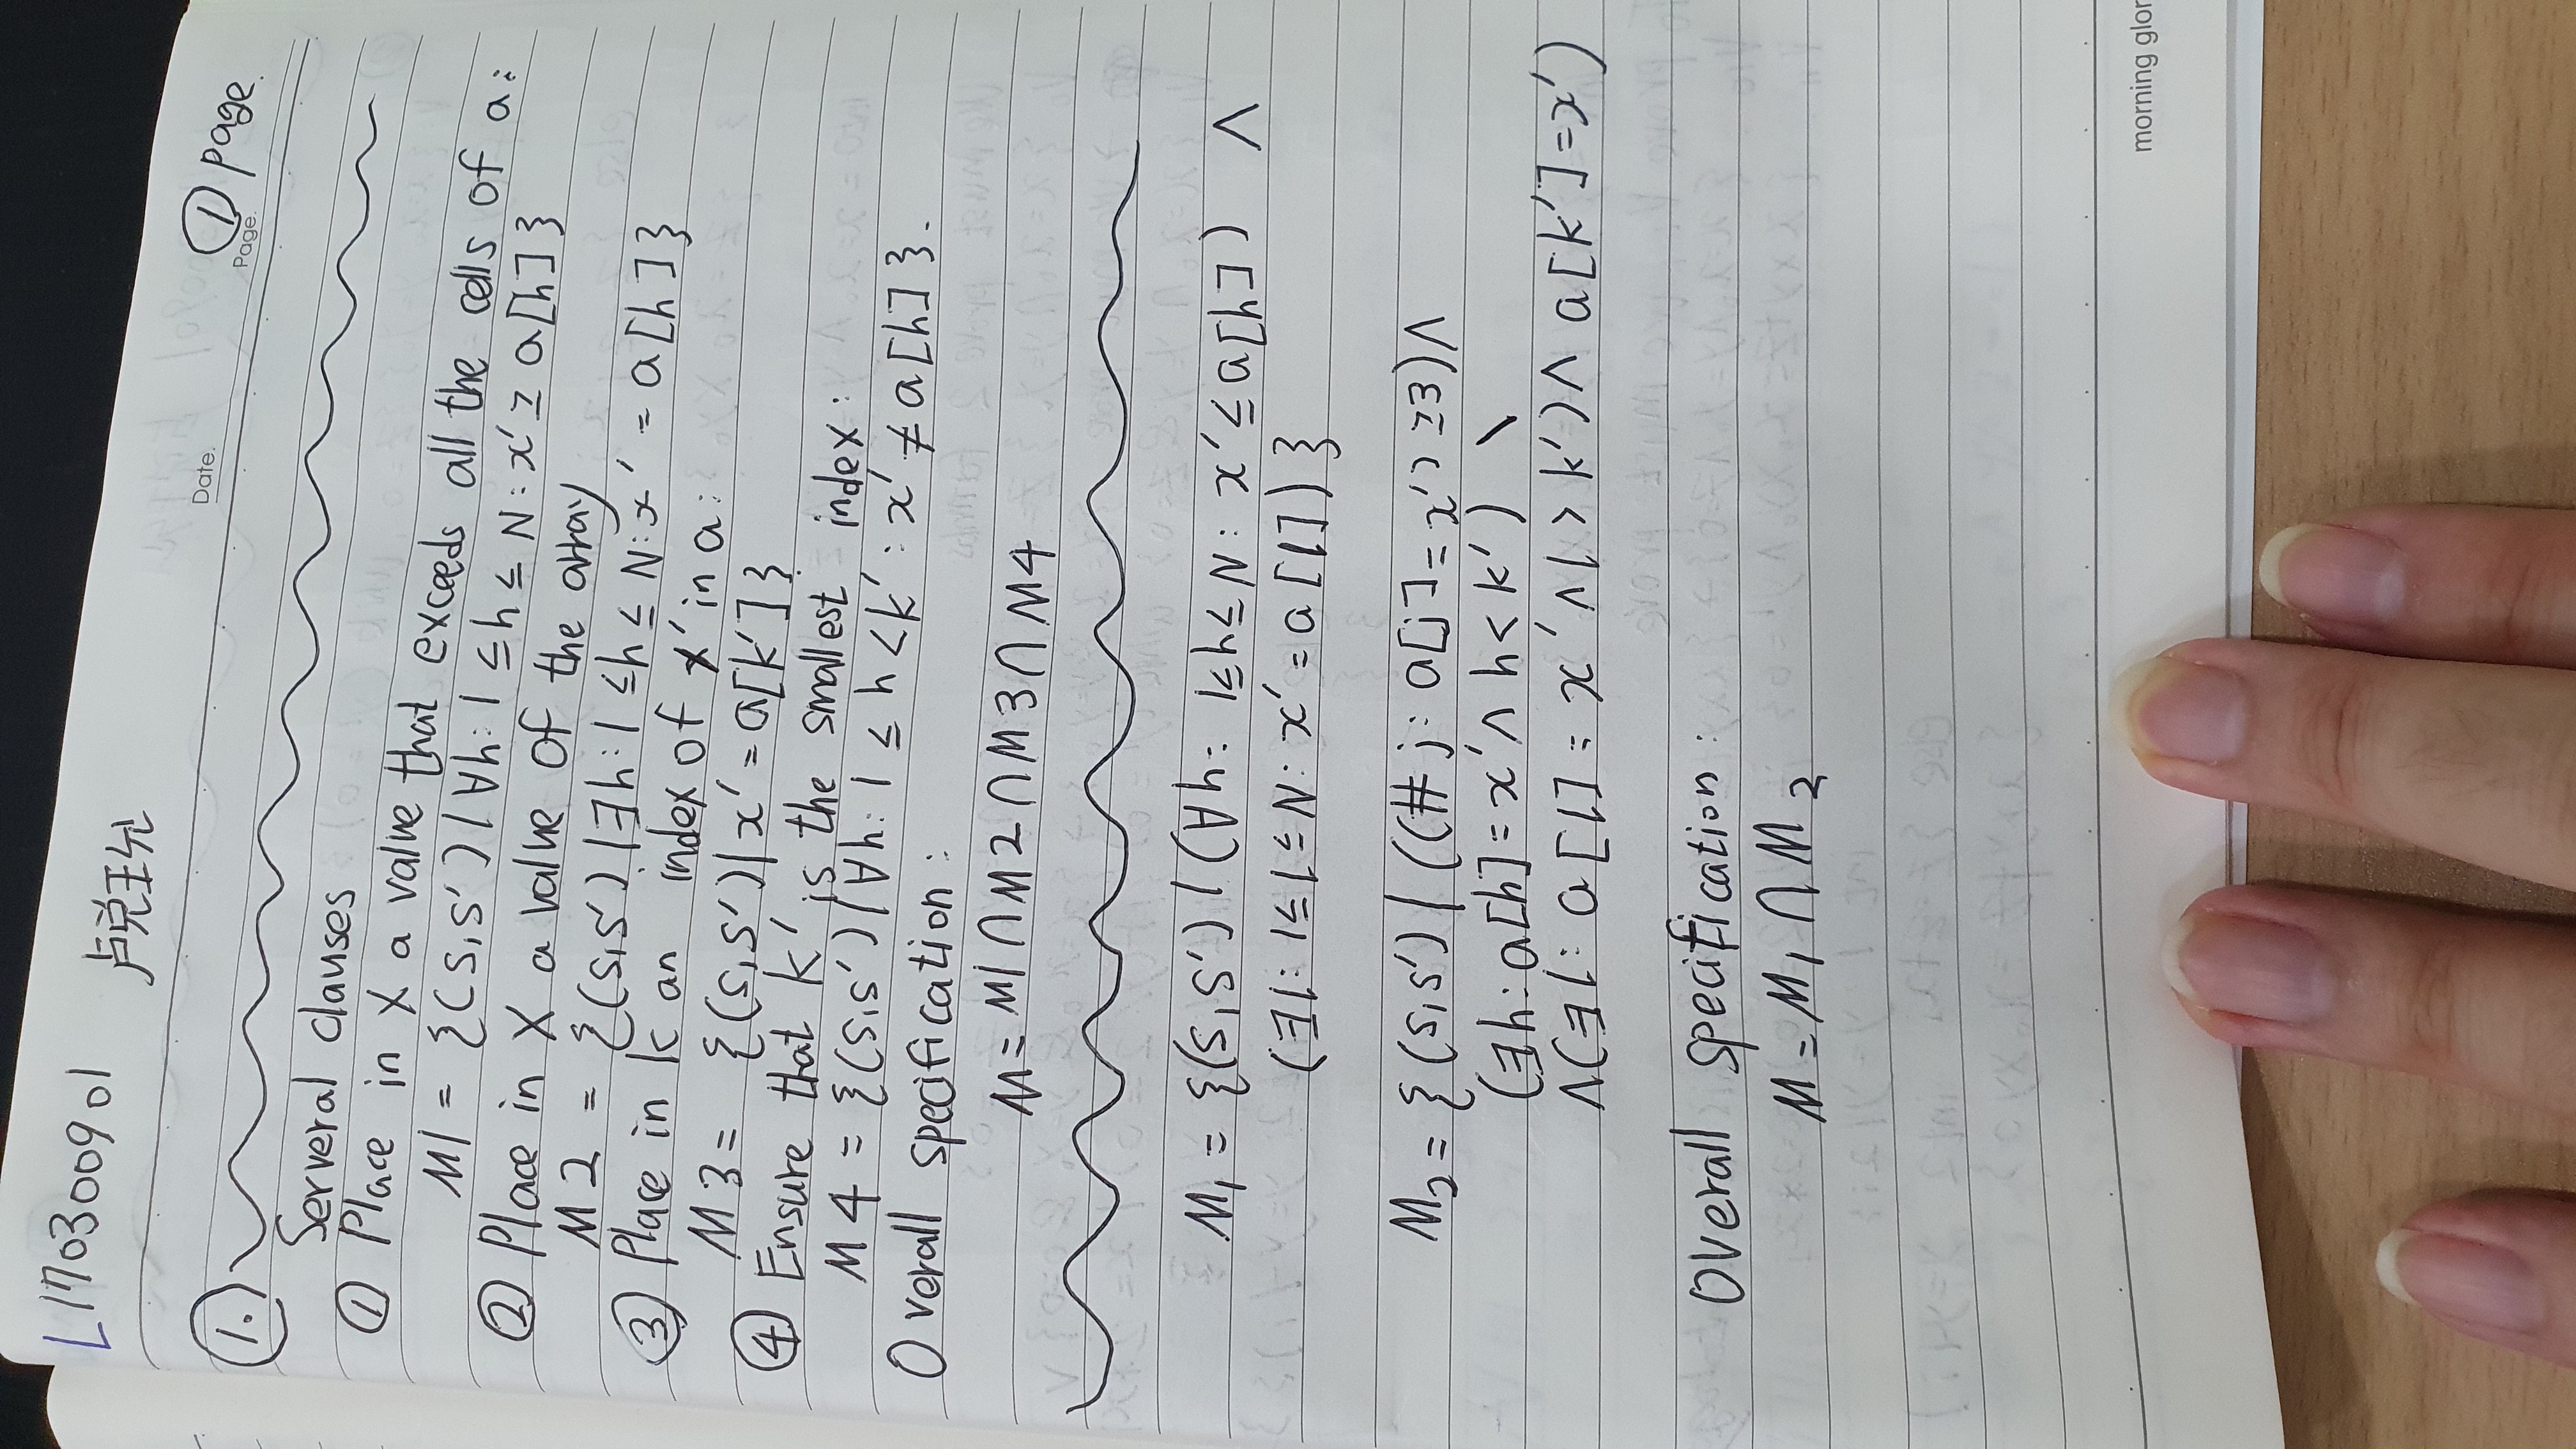 L170300901 卢说玧
Date.
Page. ① page.
1.
Serveral clauses
① Place in X a value that exceeds all the cells of a:
M1 = {(s,s') | ∀h: 1 ≤ h ≤ N: x' ≥ a[h]}
② Place in X a value of the array
M2 = {(s,s') | ∃h: 1 ≤ h ≤ N: x' = a[h]}
③ Place in k an index of x' in a:
M3 = {(s,s') | x' = a[k']}
④ Ensure that k' is the smallest index:
M4 = {(s,s') | ∀h: 1 ≤ h < k': x' ≠ a[h]}.
Overall specification:
M = M1 ∩ M2 ∩ M3 ∩ M4
M₁ = {(s,s') | (∀h: 1≤h≤N: x' ≤ a[h]) ∧
(∃l: 1≤l≤N: x' = a[l])}
M₂ = {(s,s') | ((# j: a[j] = x') ≥3) ∧
(∃h: a[h] = x' ∧ h < k') \
∧(∃l: a[l] = x' ∧ l > k') ∧ a[k'] = x')
Overall specification:
M = M₁ ∩ M₂
morning glor